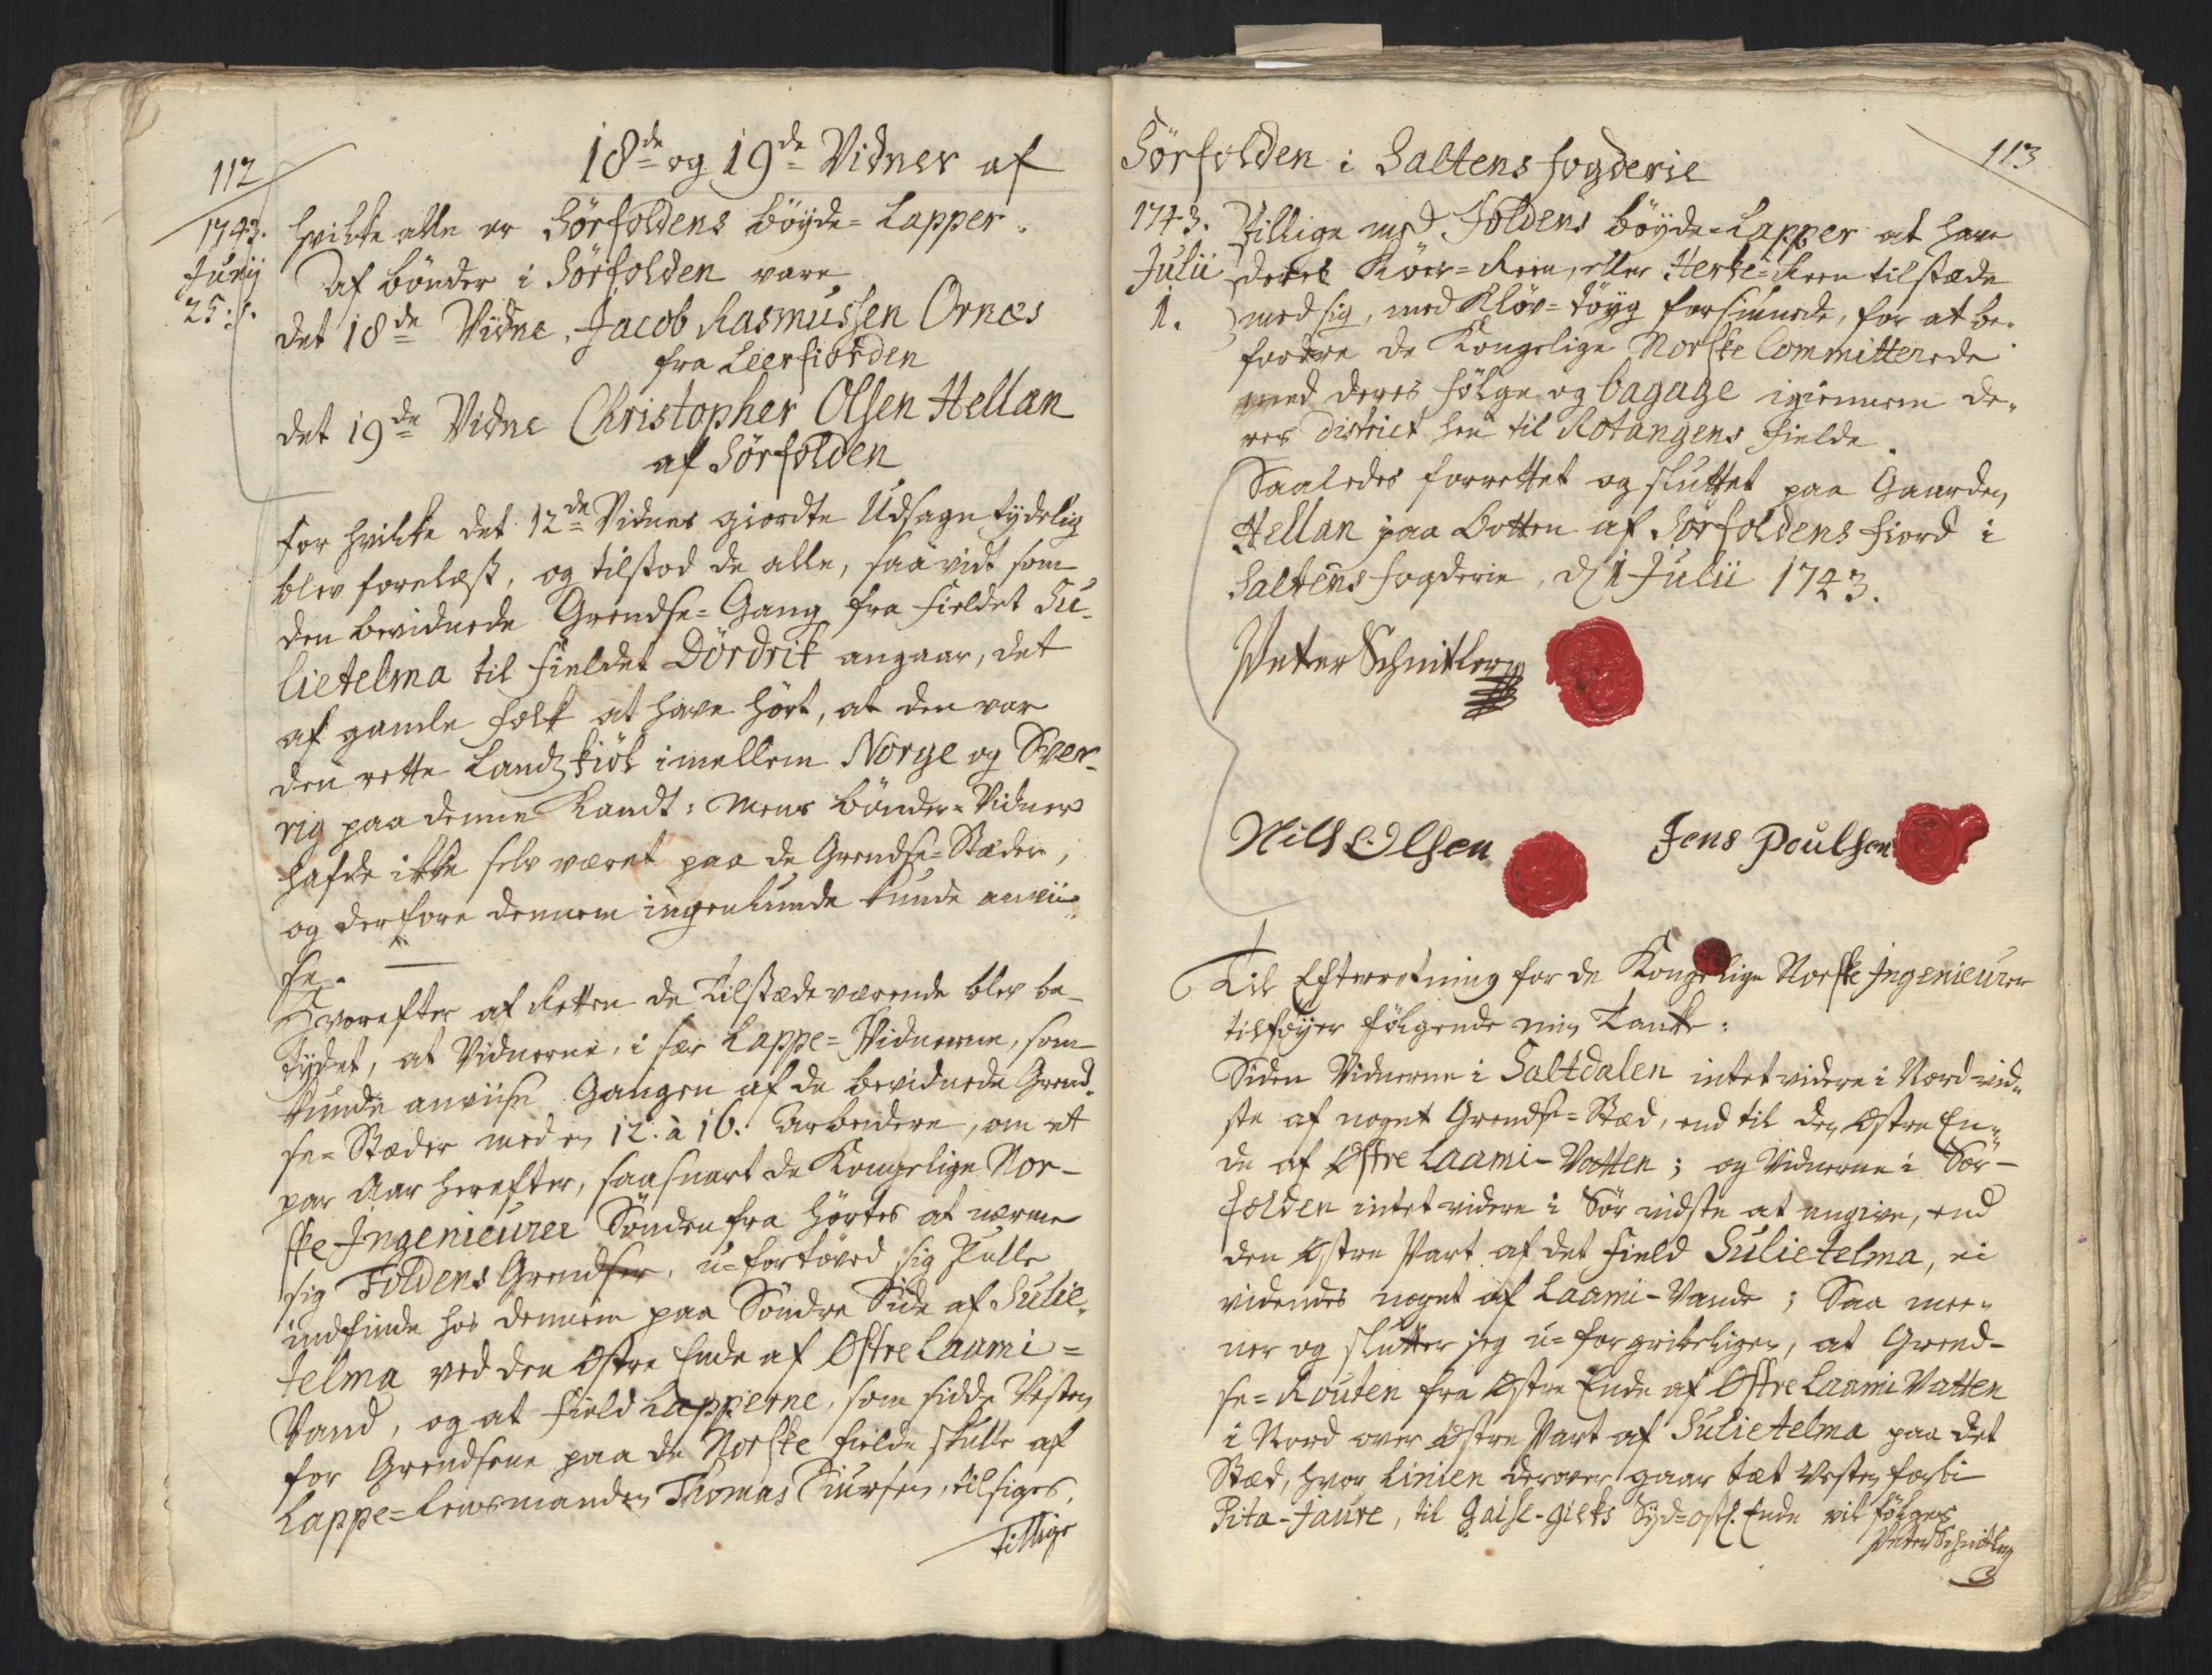 112
18de og 19de Vidner af
1743.
Junij
25:s.
hvilke alle er Sörfoldens böyde=Lapper.
Af bönder i Sörfolden vare
det 18de Vidne, Jacob Rasmussen Ornæs
fra Leerfiorden
det 19de Vidne Christopher Olsen Hellan
af Sörfolden
for hvilke det 12de Vidnes giordte Udsagn tydelig
blev forelæst, og tilstod de alle, saavidt som
den bevidnede Grendse=Gang fra Fieldet Su-
lietelma til Fieldet Dördrik angaar, det
af gamle Folk at have hört, at den var
den rette Landz Kiöl imellem Norge og Sver-
rig paa denne Kandt: Mens bönder=Vidner
hafde ikke selv været paa de Grendse=Stæder,
og derfore dennem ingenlunde kunde anvii-
se.
Hvorefter af Retten de Tilstædeværende blev be-
tydet, at Vidnerne, i sær Lappe=Vidnerne, som
kunde anviise Gangen af de bevidnede Grend-
se=Stæder med en 12. à 16. Arbeidere, om et
par Aar herefter, saasnart de Kongelige Nor-
ske Ingenieurer Sönden fra hörtes at nærme
sig Foldens Grendser, u=fortöved sig skulle
indfinde hos dennem paa Söndre Side af Sulie-
telma ved den östre Ende af Östre Laami=
Vand, og at Field Lapperne, som sidde Vesten
for Grendsene paa de Norske Fielde skulle af
Lappe=Lensmanden Thomas Siursen, tilsiges,
Tillige
Sörfolden i Saltens fogderie
113
1743.
Julii
1.
Tillige med Foldens böyde=Lapper at have
deres Kiör=Reen, eller Herke=Reen tilstæde
med sig, med Klöv=töyg forsiunede, for at be-
fordre de Kongelige Norske Committerede
med deres fölge og bagage igiennem de-
res District hen til Rotangens Fielde.
Saaledes forrettet og sluttet paa Gaarden
Hellan paa Botten af Sörfoldens Fiord i
Saltens fogderie, d. 1 Julii 1743.
Peter Schnitler
Nils Olsen
Jens Poulsen
Til Efterretning for de Kongelige Norske Ingenieurer
tilföyer fölgende min Tanke:
Siden Vidnerne i Saltdalen intet videre i Nord vid-
ste af noget Grendse=Stæd, end til den östre En-
de af Östre Laami-Vatten; og Vidnerne i Sör-
folden intet videre i Sör vidste at angive, end
den östre Part af det Field Sulietelma, ei
videndes noget af Laami-Vande; Saa mee-
ner og slutter jeg u=forgribeligen, at Grend-
se=Routen fra östre Ende af Östre Laami Vatten
i Nord over östre Part af Sulietelma paa det
Stæd, hvor Linien derover gaar tæt Vesten forbi
Pita-Jaure, til Gaise-gieks Syd=ostl. Ende vil fölges
Peter Schnitler